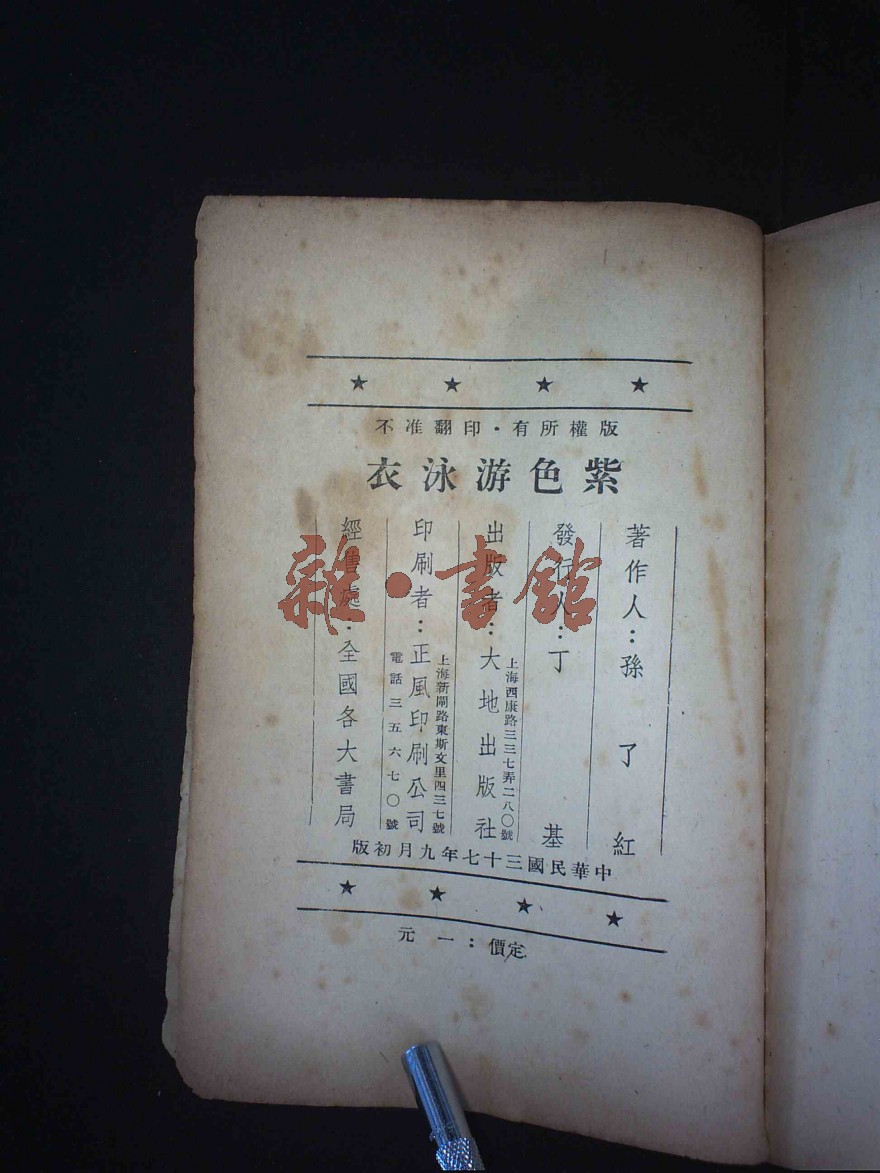 版權所有·印翻准不
紫色游泳衣
著作人：孫了紅
發行人：丁基
出版者：大地出版社
上海西康路三三七弄二八〇號
印刷者：正風印刷公司
上海新閘路東斯文里四三七號
電話三五六七〇號
經售處：全國各大書局
中華民國三十七年九月初版
定價：一元
雜·書館